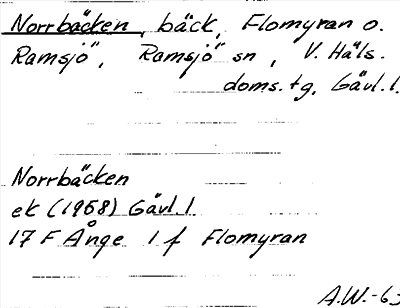 Norrbäcken, bäck, Flomyran o.
Ramsjö", Ramsjö" sn, V. Häls.
doms.tg, Gävl.l.
Norrbäcken
ek (1968) Gävl.l
17 F Ånge 1 f Flomyran
A.W.-63